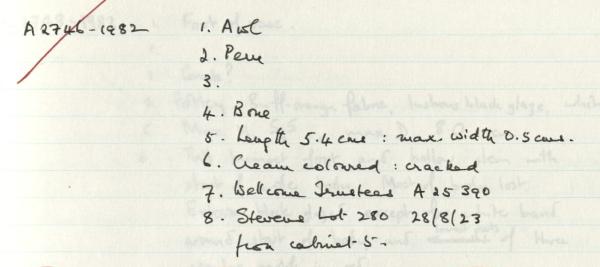 A2746-1982 1. Awl
2. Peru
3.
4. Bone
5. Length 5.4 cms : max. width 0.5 cms.
6. Cream coloured : cracked
7. Wellcome Trustees A 25390
8. Stevens Lot 280 28/8/23
from cabinet 5-